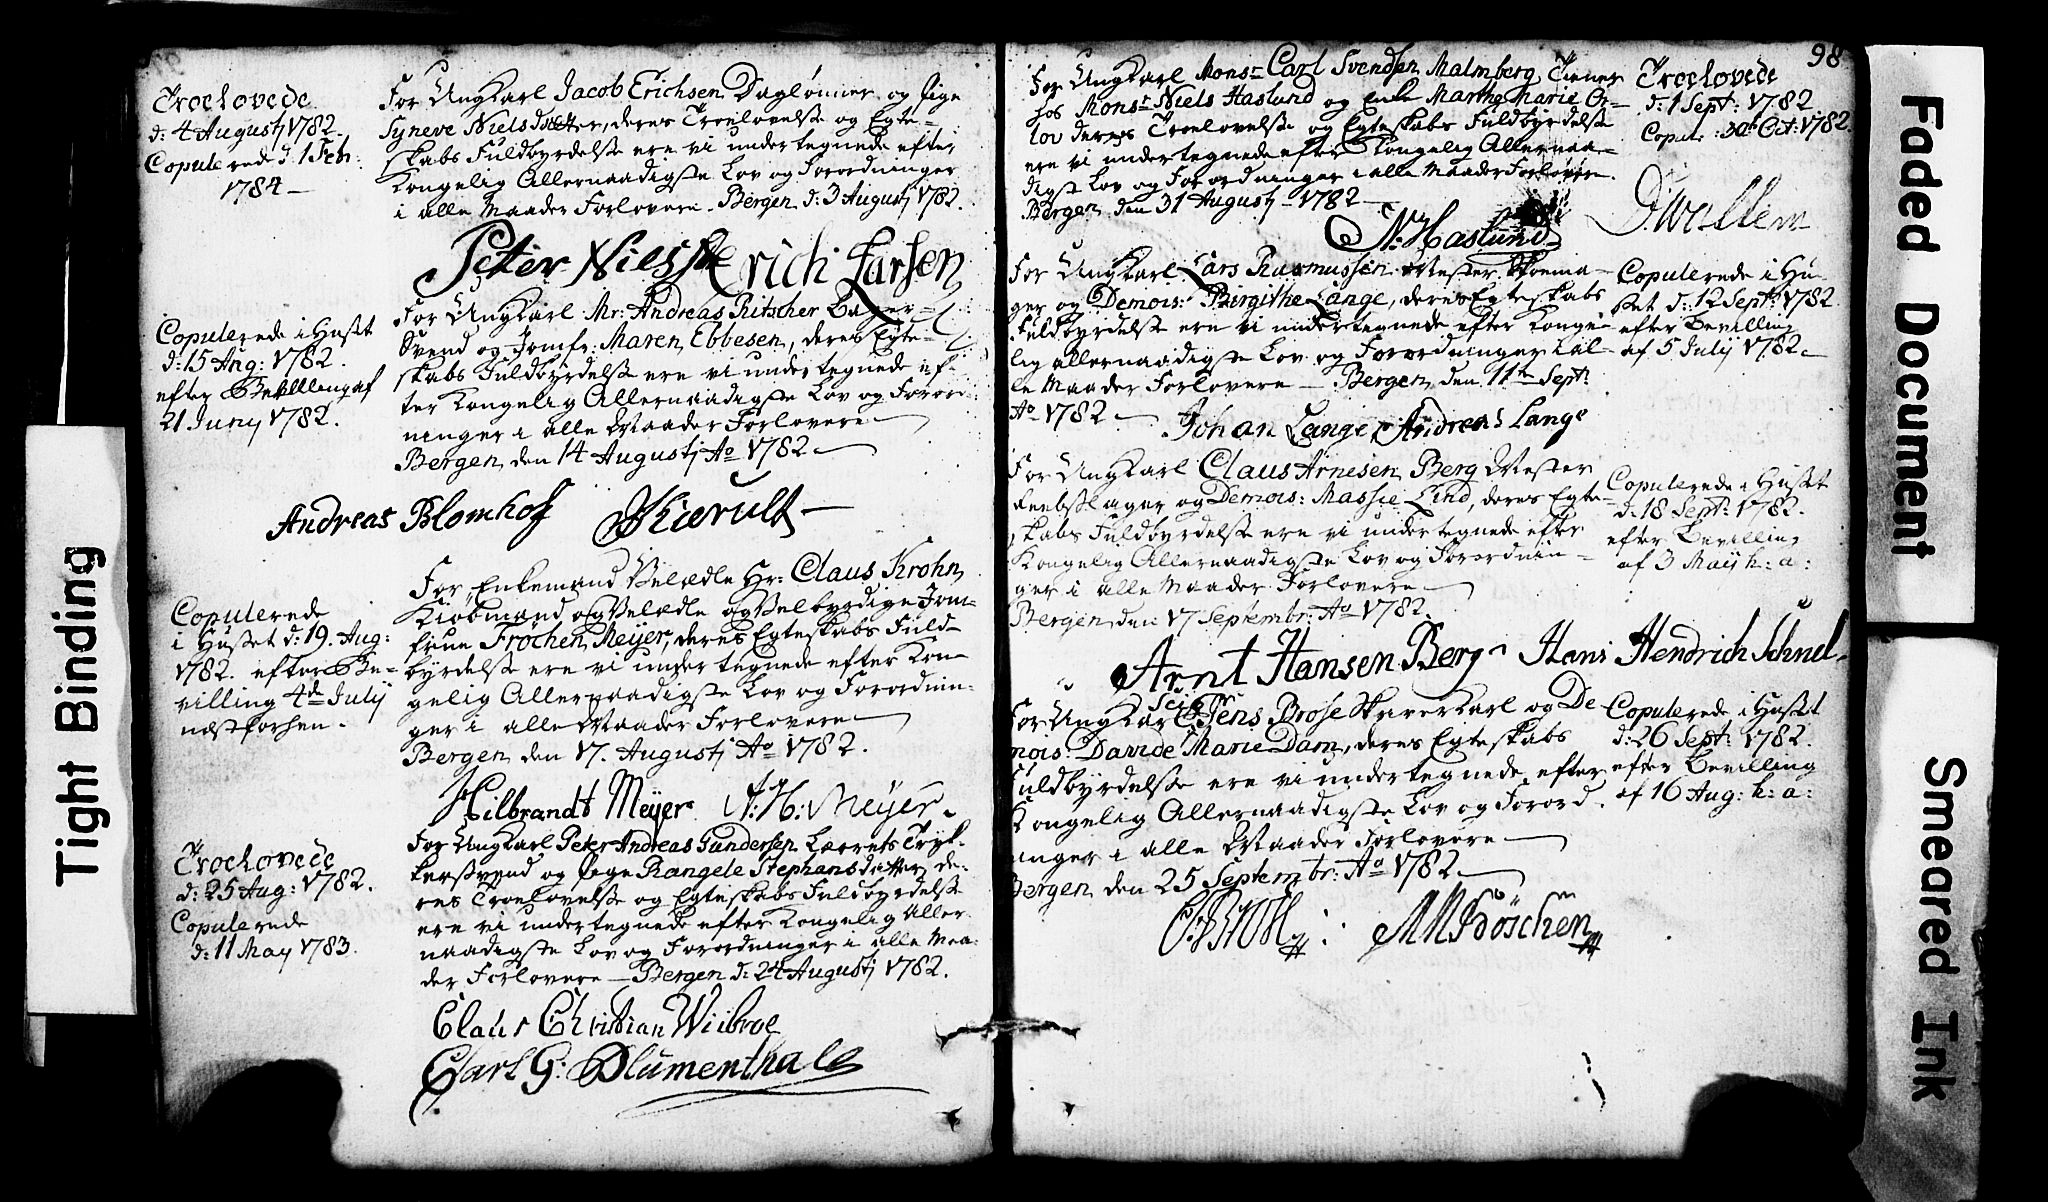 Troelovede
d: 4 Augustj 1782.
Copulerede d: 1 Feb:
1784 —
For Ungkarl Jacob Erichsen Daglønner og Pige
Syneve Nielsdatter, deres Troelovelse og Egte-
skabs Fuldbyrdelse ere vi undertegnede efter
Kongelig Allernaadigste Lov og Forordninger
i alle Maader Forlovere. Bergen d: 3 Augustj 1782.
Peter Nilssen Erich Larsen
Copulerede i Huset
d: 15 Aug: 1782.
efter Bevilling af
21 Junÿ 1782.
For Ungkarl Mr: Andreas Ritscher Bager-
Svend og Jomfr: Maren Ebbesen, deres Egte-
skabs Fuldbyrdelse ere vi undertegnede ef-
ter Kongelig Allernaadigste Lov og Foror-
ninger i alle Maader Forlovere
Bergen den 14 Augustj Ao 1782 —
Andreas Blomhof JKierult —
Copulerede
i Huset d: 19. Aug:
1782. efter Be-
villing 4de Julÿ
næstforhen.
For Enkemand Velædle Hr: Claus Krohn
Kiøbmand og Velædle og Velbyrdige Jom-
frue Frøchen Meyer, deres Egteskabs Fuld-
byrdelse ere vi undertegnede efter Kon-
gelig Allernaadigste Lov og Forordnin-
ger i alle Maader Forlovere
Bergen den 17. Augustj Ao 1782.
Hilbrandt Meyer A: H: Meyer.
Troelovede
d: 25 Aug: 1782.
Copulerede
d: 11 May 1783.
For Ungkarl Peter Andreas Gundersen Lærrets Tryk-
kersvend og Pige Rangele Stephansdatter, de-
res Troelovelse og Egteskabs Fuldbyrdelse
ere vi undertegnede efter Kongelig Aller-
naadigste Lov og Forordninger i alle Maa-
der Forlovere — Bergen d: 24 Augustj 1782.
Claus Christian Wiibroe
Carl G: Blumenthal
98
For Ungkarl Monsr Carl Svendsen Malmberg, Tiener
hos Monsr Niels Haslund og Enke Marthe Marie Or-
lov deres Troelovelse og Egteskabs Fuldbyrdelse
ere vi undertegnede efter Kongelig Allernaa-
digste Lov og Forordninger i alle Maader Forlovere.
Bergen den 31 Augustj 1782 —
Troelovede
d: 1 Sept: 1782.
Copul: 30te Oct: 1782.
N: Haslund D: Wallem
For Ungkarl Lars Rasmussen Mester Skoema-
ger og Demois: Birgithe Lange, deres Egteskabs
Fuldbyrdelse ere vi undertegnede efter Konge-
lig allernaadigste Lov og Forordninger i al-
le Maader Forlovere — Bergen den 11te Sept:
Ao 1782 —
Copulerede i Hu-
set d: 12 Sept: 1782.
efter Bevilling
af 5 Julÿ 1782.
Johan Lange Andreas Lange
For Ungkarl Claus Arnesen Berg Mester
Reebslager og Demois: Massie Lind, deres Egte-
skabs Fuldbyrdelse ere vi undertegnede efter
Kongelig Allernaadigste Lov og Forordnin-
ger i alle Maader Forlovere
Bergen den 17 Septembr: Ao 1782.
Copulerede i Huset
d: 18 Sept: 1782.
efter Bevilling
af 3 Maÿ h: a:
Arnt Hansen Berg Hans Hendrich Schnel
For Ungkarl Sr Jens Brose Skriverkarl og De-
mois: Davide Marie Dam, deres Egteskabs
Fuldbyrdelse ere vi undertegnede efter
Kongelig Allernaadigste Lov og Forord-
ninger i alle Maader Forlovere
Bergen den 25 Septembr: Ao 1782 —
Copulerede i Huset
d: 26 Sept: 1782.
efter Bevilling
af 16 Aug: h: a:
MMBöschen
Tight Binding
Faded Document
Smeared Ink